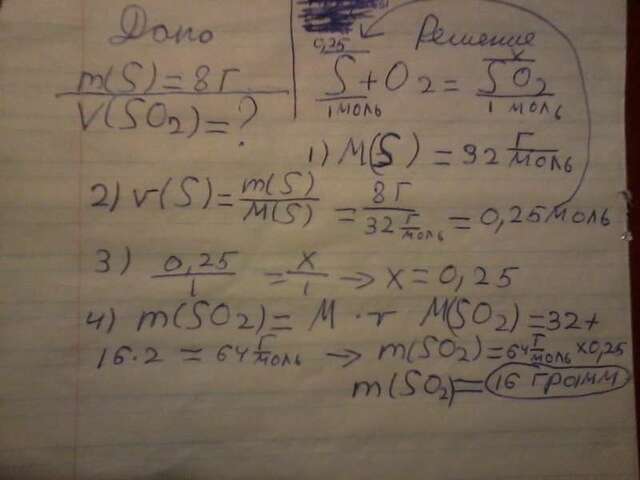 Дано
m(S)=8г
V(SO₂)=?
Решение
0,25 x
S+O₂=SO₂
1 моль 1 моль
1) M(S)=32 г/моль
2) v(S)=m(S)/M(S)=8г/32 г/моль=0,25 моль
3) 0,25/1=x/1→x=0,25
4) m(SO₂)=M·r M(SO₂)=32+
16·2=64 г/моль→m(SO₂)=64 г/моль×0,25
m(SO₂)=16 грамм